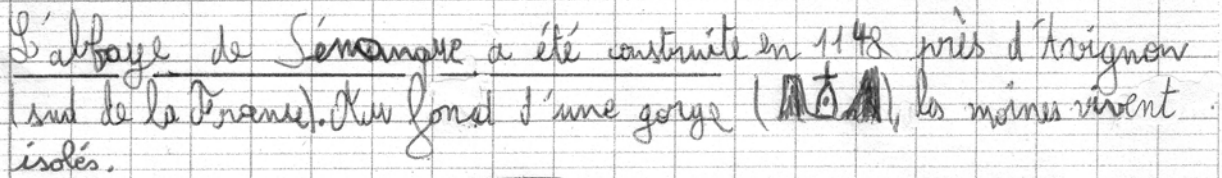 L'abbaye de Sénanque a été construite en 1148 près d'Avignon
(sud de la France). Au fond d'une gorge (), les moines vivent
isolés.